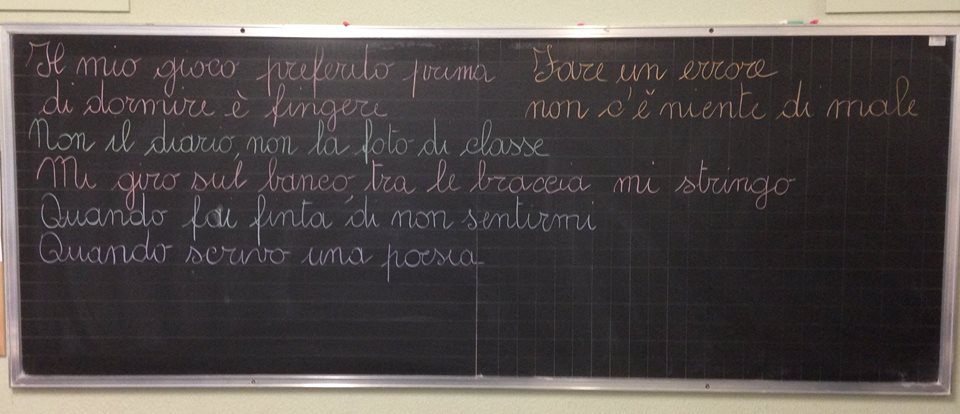 Il mio gioco preferito prima
di dormire è fingere
Non il diario, non la foto di classe
Mi giro sul banco, tra le braccia mi stringo
Quando fai finta di non sentirmi
Quando scrivo una poesia
Fare un errore
non c'è niente di male